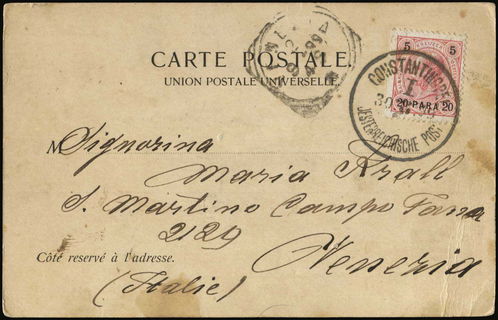 CARTE POSTALE.
UNION POSTALE UNIVERSELLE.
5 5
20 PARA 20
CONSTANTINOPEL
I
OESTERREICHISCHE POST
M Signorina
Maria Krall
S. Martino Campo
2129
Venezia
Côté reservé à l'adresse.
(Italie)